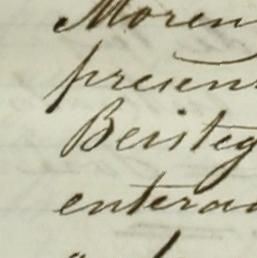 Moren
presen
Beisteg
enterad